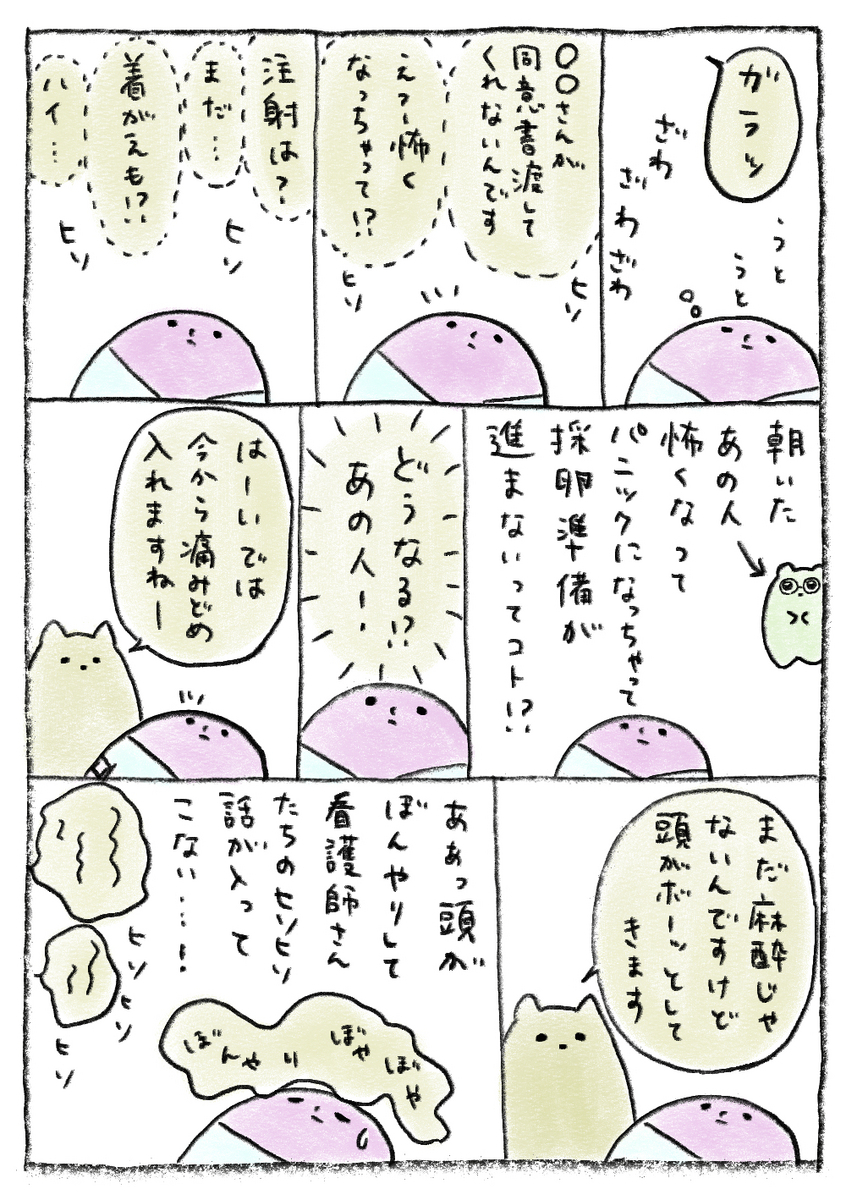 ガラッ
ざわ
ざわざわ
うと
うと
〇〇さんが
同意書渡して
くれないんです
えっ怖く
なっちゃって!?
ヒソ
ヒソ
注射は?
まだ…
着がえも!?
ハイ…
ヒソ
ヒソ
朝いた
あの人
怖くなって
パニックになっちゃって
採卵準備が
進まないってコト!?
どうなる!?
あの人!
はーいでは
今から痛みどめ
入れますねー
まだ麻酔じゃ
ないんですけど
頭がボーッとして
きます
ああっ頭が
ぼんやりして
看護師さん
たちのヒソヒソ
話が入って
こない…!
ヒソ
ヒソ
ヒソ
ぼやぼや
ぼんやり